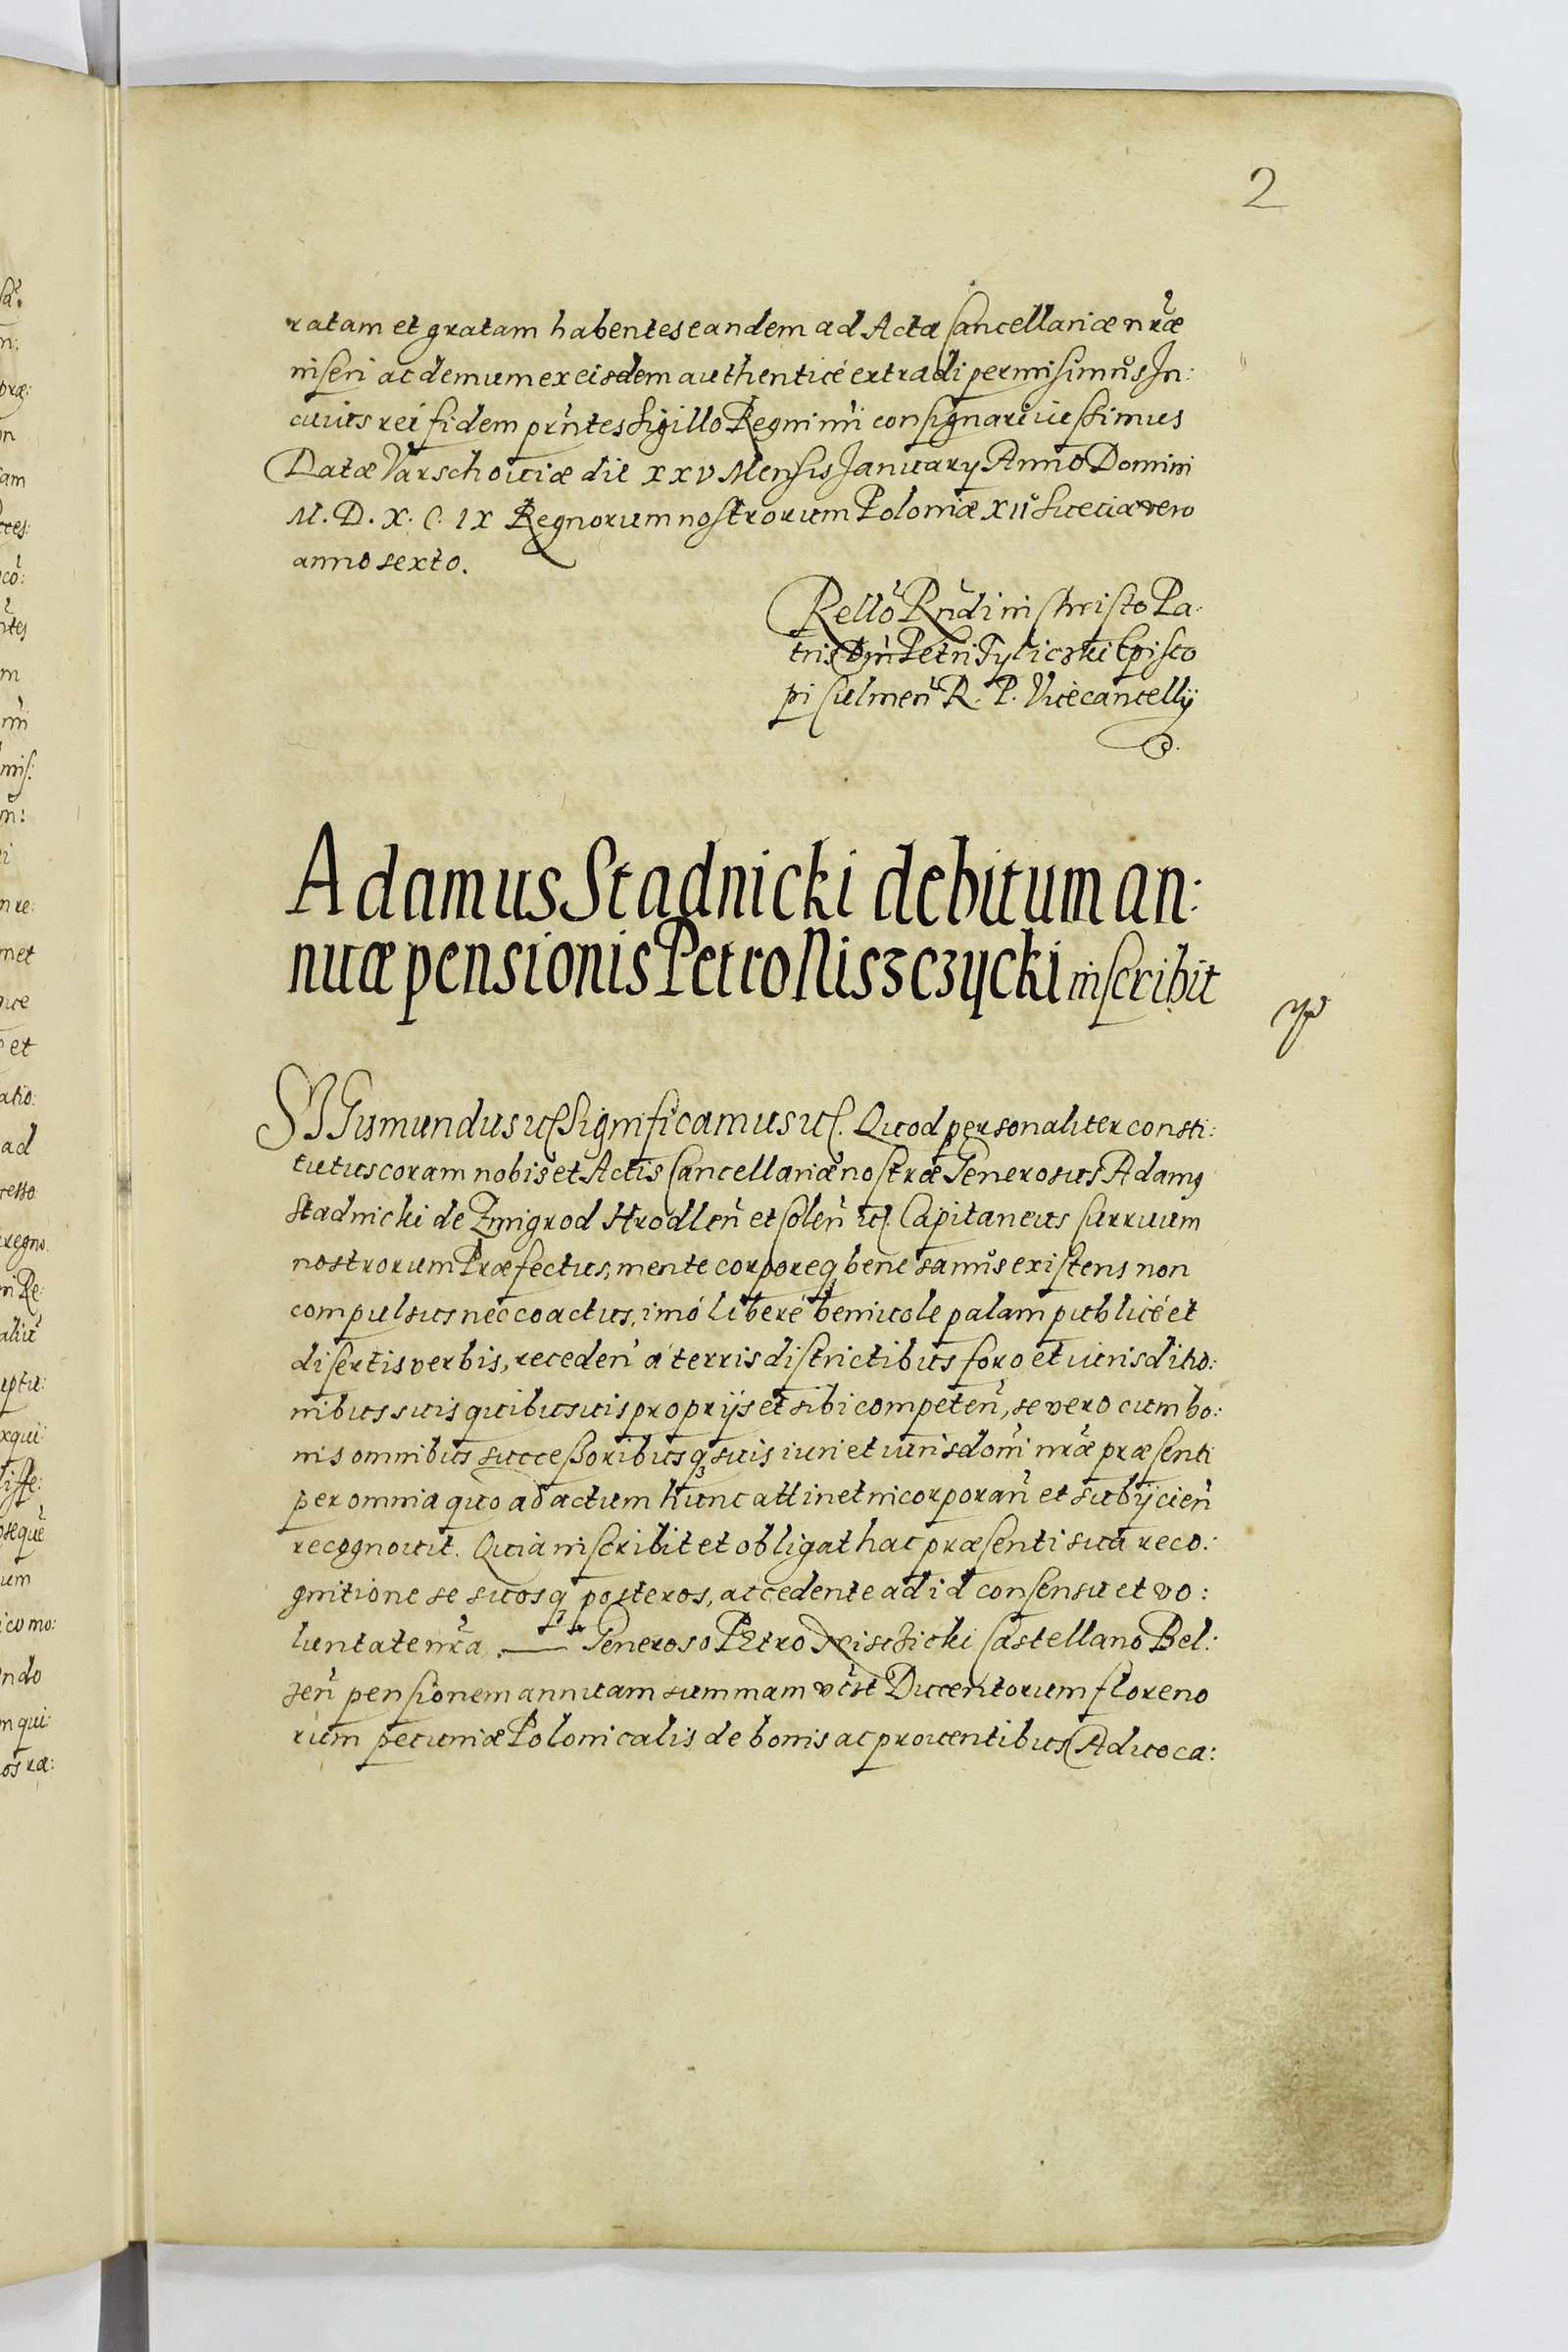 2
ratam et gratam habentes eandem ad Acta Cancellariæ nr̃æ
inseri ac demum ex eisdem authenticé extradi permisimus In:
cuius rei fidem prñtes Sigillo Regni nri consignari iussimus
Datæ Varschouiæ die XXV Mensis January Anno Domini
M. D. X. C. IX Regnorum nostrorum Poloniæ XII Sueciæ vero
anno sexto.
Rellõ Rñdi in Christo Pa:
tris Dni Petri Tyliczki Episco
pi Culmeñ R. P. Vicecancellÿ
Adamus Stadnicki debitum an:
nuæ pensionis Petro Niszczycki inscribit
SIGismundus uc Significamus uc. Quod personaliter consti:
tutus coram nobis et Actis Cancellariæ nostræ Generosus Adamg
Stadnicki de Zmigrod Hrodleñ et soleñ uc. Capitaneus Curruum
nostrorum Præfectus, mente corporeq bene sanus existens non
compulsus nec coactus, imó liberé beniuole palam publicé et
disertis verbis, recedeñ á terris districtibus foro et iurisditio:
nibus suis quibusuis proprijs et sibi competeñ, se vero cum bo:
nis omnibus successoribusq suis iuri et iurisdoñi nræ præsenti
per omnia quo ad actum hunc attinet incorporañ et subijcieñ
recognouit. Quia inscribit et obligat hac præsenti sua reco:
gnitione se suosq posteros, accedente ad id consensu et vo:
luntate nr̃a — Generoso Petro Nisczicki Castellano Bel:
zeñ pensionem annuam summam vict Ducentorum floreno
rum pecuniæ Polonicalis de bonis ac prouentibus Aduoca: